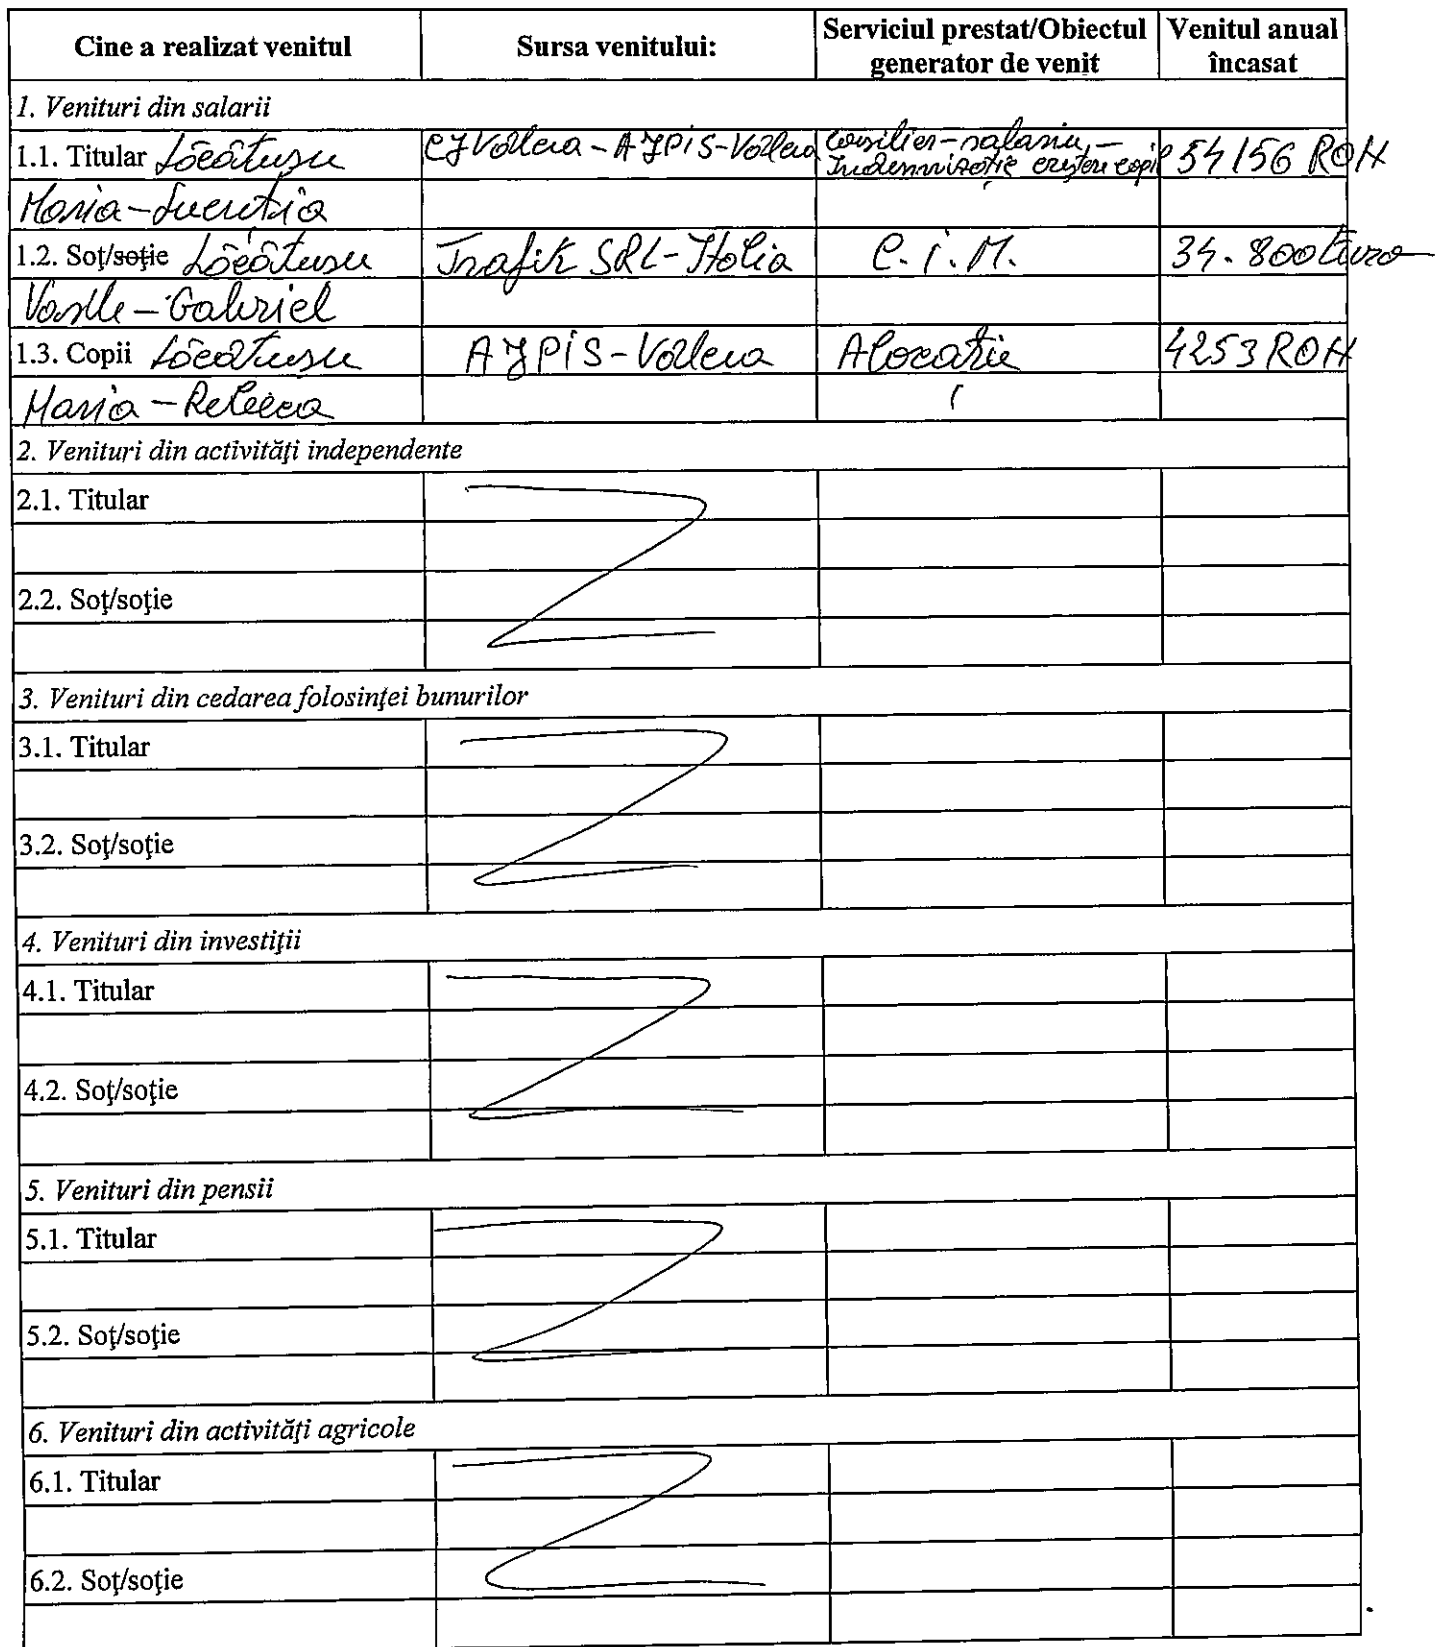 Cine a realizat venitul | Sursa venitului: | Serviciul prestat/Obiectul generator de venit | Venitul anual încasat
1. Venituri din salarii
1.1. Titular Lăcătușu | CJ Vâlcea - AJPIS - Vâlcea | consilier - salariu, - Indemnizație creștere copil | 54156 RON
Maria - Lucreția
1.2. Soţ/soţie Lăcătușu | Trafik SRL - Italia | C.I.M. | 34.800 Euro
Vasile - Gabriel
1.3. Copii Lăcătușu | AJPIS - Vâlcea | Alocație | 4253 RON
Maria - Rebeca
2. Venituri din activităţi independente
2.1. Titular
2.2. Soţ/soţie
3. Venituri din cedarea folosinţei bunurilor
3.1. Titular
3.2. Soţ/soţie
4. Venituri din investiţii
4.1. Titular
4.2. Soţ/soţie
5. Venituri din pensii
5.1. Titular
5.2. Soţ/soţie
6. Venituri din activităţi agricole
6.1. Titular
6.2. Soţ/soţie